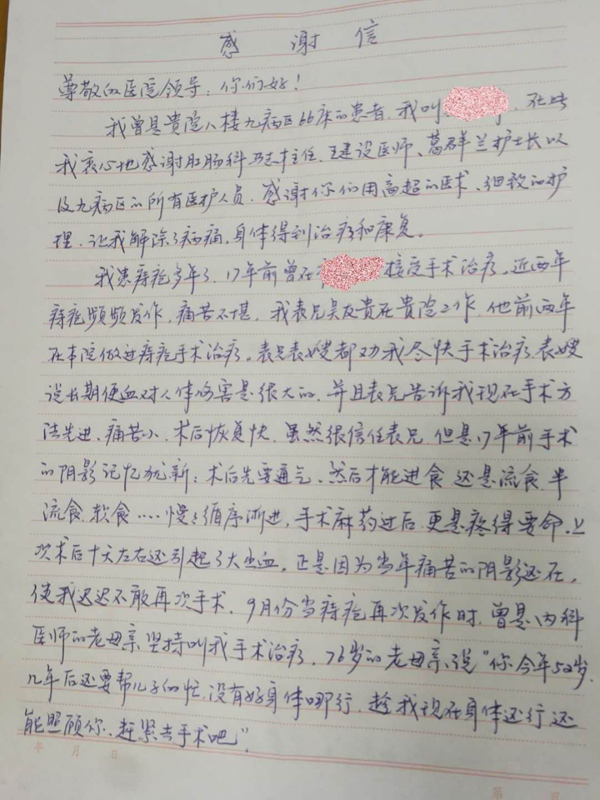 感谢信
尊敬的医院领导：你们好！
我曾是贵院八楼九病区66床的患者，我叫，在此
我衷心地感谢肛肠科主任、王建设医师、葛群兰护士长以
及九病区的所有医护人员。感谢你们用高超的医术、细致的护
理，让我解除了病痛，身体得到治疗和康复。
我患痔疮多年了，17年前曾在接受手术治疗，近两年
痔疮频频发作，痛苦不堪。我表兄吴友贵在贵院工作，他前两年
在本院做过痔疮手术治疗。表兄表嫂都劝我尽快手术治疗，表嫂
说长期便血对人体伤害是很大的，并且表兄告诉我现在手术方
法先进，痛苦小，术后恢复快。虽然很信任表兄，但是17年前手术
的阴影记忆犹新：术后先要通气，然后才能进食，还是流食、半
流食、软食……慢慢循序渐进，手术麻药过后，更是疼得要命，上
次术后十天左右还引起了大出血。正是因为当年痛苦的阴影还在，
使我迟迟不敢再次手术。9月份当痔疮再次发作时，曾是内科
医师的老母亲坚持叫我手术治疗，76岁的老母亲说“你今年52岁，
几年后还要帮儿子们忙，没有好身体哪行，趁我现在身体还行还
能照顾你，赶紧去手术吧”。
年 月 日
第 页